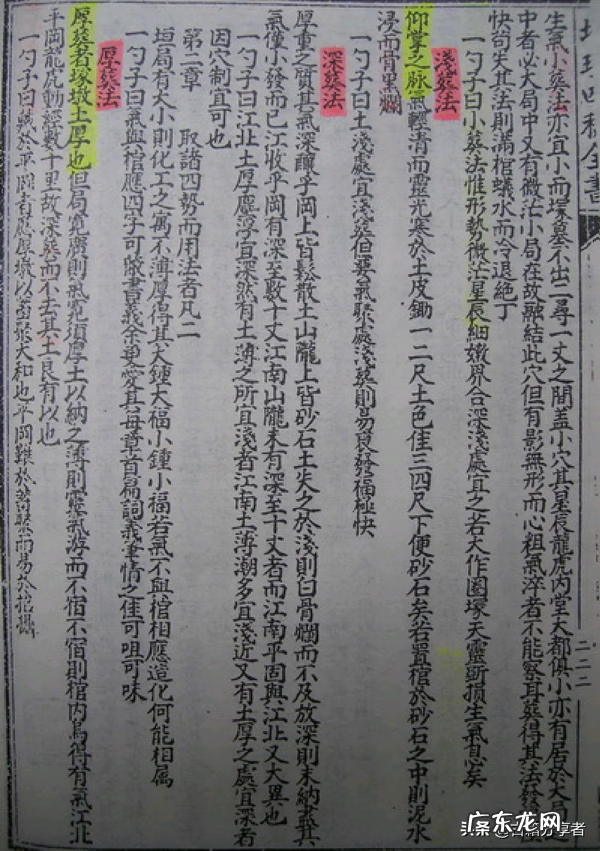 生氣小葬法亦宜小而塚墓不出二尋一丈之間蓋小穴其星辰龍虎內堂大都俱小亦有居於大局之
中者必大局中又有微茫小局在故融結此穴但有影無形而心粗氣淬者不能察耳葬得其法發
快苟失其法則滿棺蟻水而冷退絕丁
一勺子曰小葬法惟形勢微茫星辰細嫩界合深淺處宜之若大作圈塚天靈斷損生氣息矣
淺葬法
仰掌之脉氣輕清而靈光塞於土皮鋤一二尺土色佳三四尺下便砂石矣若置棺於砂石之中則泥水
浸而骨黑爛
一勺子曰土淺處宜淺葬但要氣聚處淺葬則易良發福極快
深葬法
厚重之質其氣深釀乎岡上皆鬆散土山隴上皆砂石土失之於淺則白骨爛而不及放深則未納蓋其
氣僅小發而已江收乎岡有深至數十丈江南山隴未有深至十丈者而江南平固與江北又大異也
一勺子曰江北土厚塵浮宜深然有土薄之所宜淺者江南土薄潮多宜淺近又有土厚之處宜深者
因穴制宜可也
第二章　取諸四勢而用法者凡二
垣局有大小則化工之寓不薄厚得其大鍾大福小鍾小福若氣不與棺相應造化何能相属
一勺子曰氣與棺應四字可蔽書義余更愛其每章首篇詞義重情之佳可咀可味
厚葬法
厚葬者塚墩土厚也但局寬廣則氣寬須厚土以納之薄則靈氣游而不宿不宿則棺內烏得有氣江北
平岡龍虎動經數十里故深葬而不去其土良有以也
一勺子曰藏於平岡者應厚墩以蓄聚大和也平岡難於蓄聚而易於
二二二
头条
古籍分享者
广东龙网